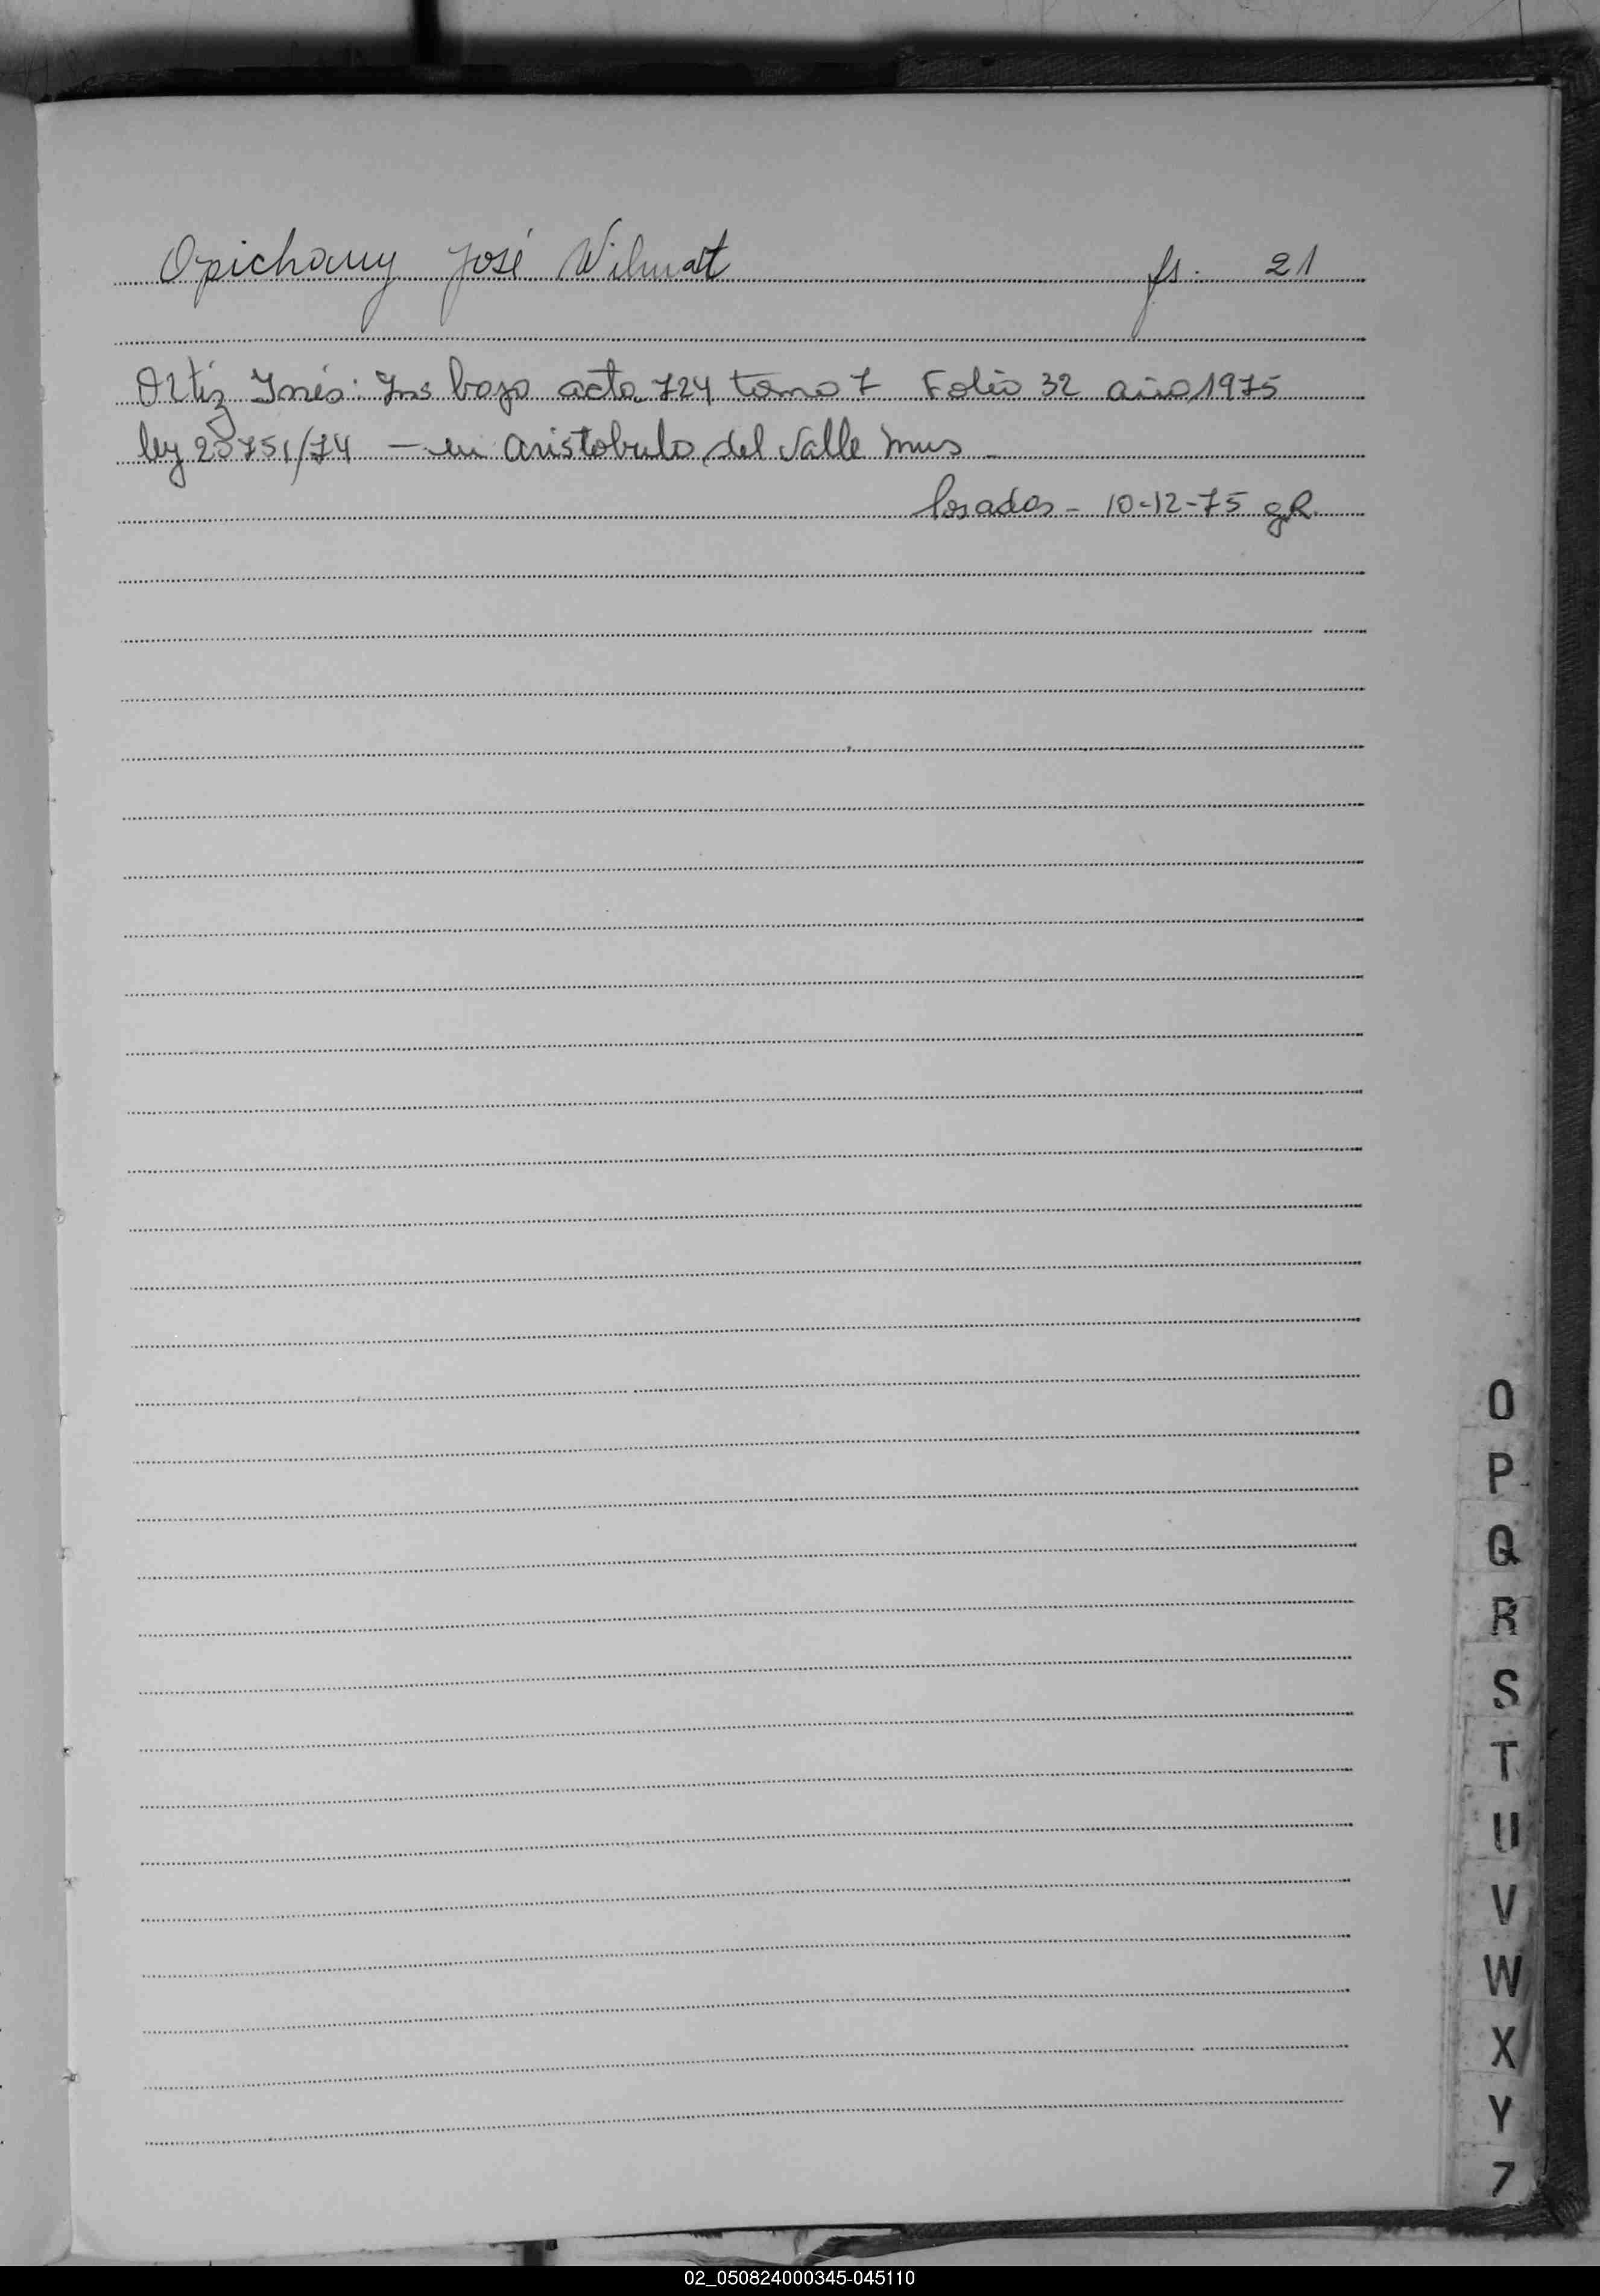 Opichany José Wilmat fs. 21
Ortiz Inés: Ins bajo acta 724 tomo 7 Folio 32 año 1975
ley 20751/74 — en Aristobulo del Valle Mnes -
Posadas - 10-12-75 gR.
O
P
Q
R
S
T
U
V
W
X
Y
Z
02_050824000345-045110